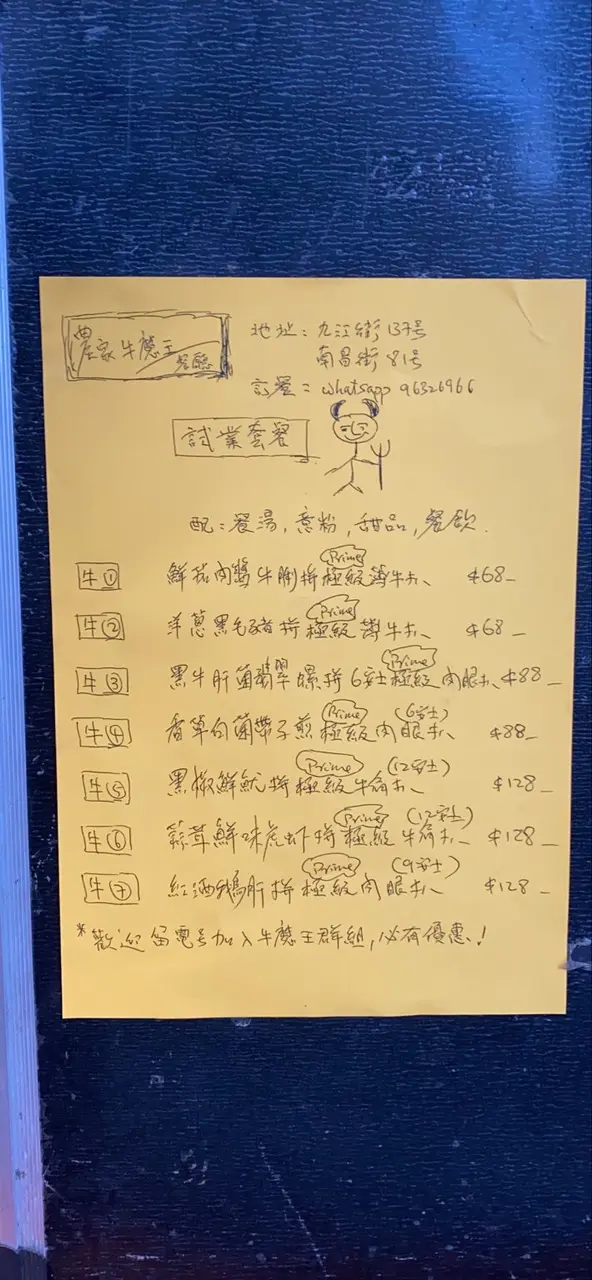 農家牛魔王
餐廳
地址：九江街137号
南昌街81号
訂餐：whatsapp 96326966
試業套餐
配：餐湯，意粉，甜品，餐飲.
牛① 鮮茄肉醬牛脷拼極級薄牛扒 $68_
Prime
牛② 洋蔥黑毛豬拼極級薄牛扒 $68_
Prime
牛③ 黑牛肝菌翡翠螺拼6安士極級肉眼扒 $88_
Prime
牛④ 香草白菌帶子煎極級肉眼扒 $88_
Prime (6安士)
牛⑤ 黑椒鮮魷拼極級牛扒 $128_
Prime (12安士)
牛⑥ 蒜茸鮮味虎虾拼極級牛扒 $128_
Prime (12安士)
牛⑦ 紅酒鵝肝拼極級肉眼扒 $128_
Prime (9安士)
*歡迎留電号加入牛魔王群組，必有優惠！